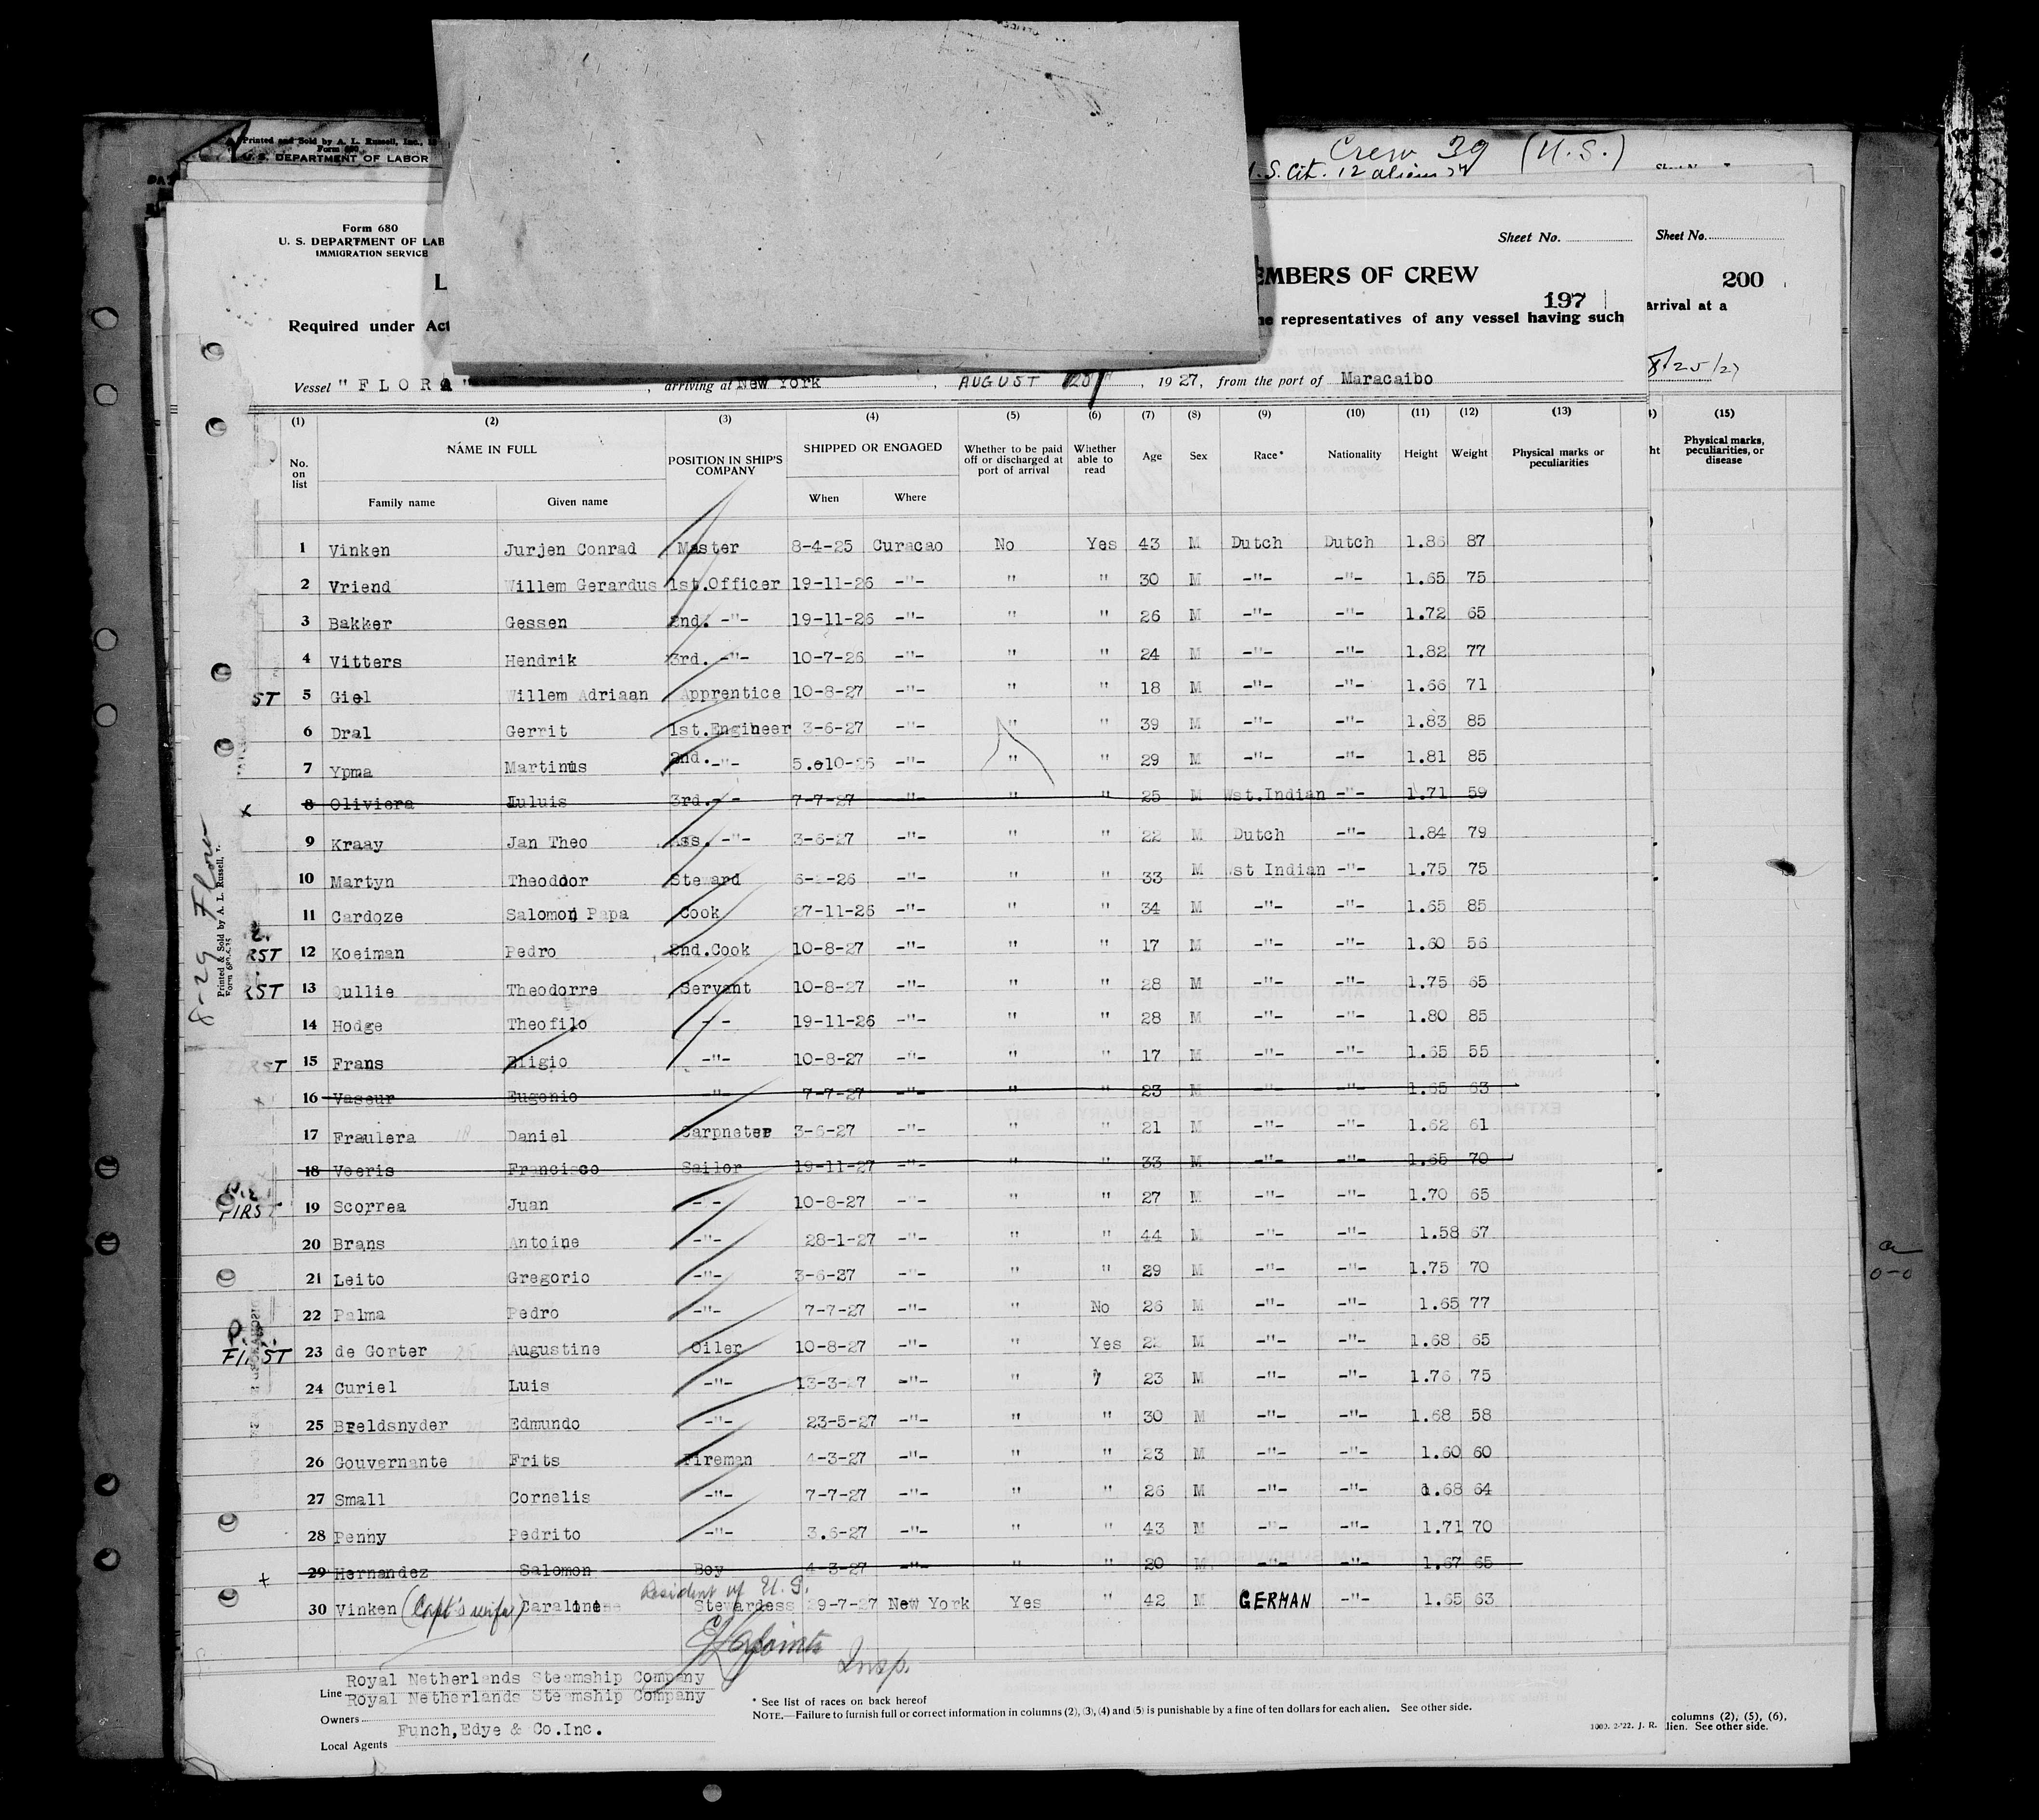 Printed and Sold by A. L. Russell, Inc.,
Form 680
U. S. DEPARTMENT OF LABOR
Crew 39 (U.S.)
S. Cit. 12 aliens 27
Form 680
U. S. DEPARTMENT OF LAB
IMMIGRATION SERVICE
Sheet No.
Sheet No.
L
EMBERS OF CREW
200
197
Required under Act
he representatives of any vessel having such
arrival at a
8/25/27
Vessel "FLORA", arriving at New York, AUGUST 25, 1927, from the port of Maracaibo
(1) (2) (3) (4) (5) (6) (7) (8) (9) (10) (11) (12) (13) (15)
No. on list
NAME IN FULL
Family name
Given name
POSITION IN SHIP'S COMPANY
SHIPPED OR ENGAGED
When
Where
Whether to be paid off or discharged at port of arrival
Whether able to read
Age
Sex
Race*
Nationality
Height
Weight
Physical marks or peculiarities
ht
Physical marks, peculiarities, or disease
1 Vinken Jurjen Conrad Master 8-4-25 Curacao No Yes 43 M Dutch Dutch 1.86 87
2 Vriend Willem Gerardus 1st.Officer 19-11-26 -"- " " 30 M -"- -"- 1.65 75
3 Bakker Gessen 2nd. -"- 19-11-26 -"- " " 26 M -"- -"- 1.72 65
4 Vitters Hendrik 3rd. -"- 10-7-26 -"- " " 24 M -"- -"- 1.82 77
ST 5 Giel Willem Adriaan Apprentice 10-8-27 -"- " " 18 M -"- -"- 1.66 71
6 Dral Gerrit 1st.Engineer 3-6-27 -"- " " 39 M -"- -"- 1.83 85
7 Ypma Martinus 2nd.-"- 5.10-26 -"- " " 29 M -"- -"- 1.81 85
x 8 Oliviera Luluis 3rd.- - 7-7-27 -"- " " 25 M Wst.Indian -"- 1.71 59
9 Kraay Jan Theo Ass. -"- 3-6-27 -"- " " 22 M Dutch -"- 1.84 79
10 Martyn Theodoor Steward 6- -26 -"- " " 33 M Wst Indian -"- 1.75 75
11 Cardoze Salomon Papa Cook 27-11-26 -"- " " 34 M -"- -"- 1.65 85
RST 12 Koeiman Pedro 2nd.Cook 10-8-27 -"- " " 17 M -"- -"- 1.60 56
RST 13 Qullie Theodorre Servant 10-8-27 -"- " " 28 M -"- -"- 1.75 65
14 Hodge Theofilo - - 19-11-26 -"- " " 28 M -"- -"- 1.80 85
FIRST 15 Frans Eligio -"- 10-8-27 -"- " " 17 M -"- -"- 1.65 55
16 Vaseur Eugenio -"- 7-7-27 -"- " " 23 M -"- -"- 1.65 63
17 Fraulera Daniel Carpneter 3-6-27 -"- " " 21 M -"- -"- 1.62 61
18 Veeris Francisco Sailor 19-11-27 -"- " " 33 M -"- -"- 1.65 70
FIRST 19 Scorrea Juan - - 10-8-27 -"- " " 27 M -"- -"- 1.70 65
20 Brans Antoine -"- 28-1-27 -"- " " 44 M -"- -"- 1.58 67
21 Leito Gregorio -"- 3-6-27 -"- " " 29 M -"- -"- 1.75 70
22 Palma Pedro -"- 7-7-27 -"- " No 26 M -"- -"- 1.65 77
FIRST 23 de Gorter Augustine Oiler 10-8-27 -"- " Yes 22 M -"- -"- 1.68 65
24 Curiel Luis -"- 13-3-27 -"- " " 23 M -"- -"- 1.76 75
25 Breldsnyder Edmundo -"- 23-5-27 -"- " " 30 M -"- -"- 1.68 58
26 Gouvernante Frits Fireman 4-3-27 -"- " " 23 M -"- -"- 1.60 60
27 Small Cornelis -"- 7-7-27 -"- " " 26 M -"- -"- 1.68 64
28 Penny Pedrito -"- 3.6-27 -"- " " 43 M -"- -"- 1.71 70
+ 29 Hernandez Salomon Boy 4-3-27 -"- " " 20 M -"- -"- 1.67 65
Resident of U. S.
30 Vinken (Capt's wife) Caraline Stewardess 29-7-27 New York Yes " 42 M GERMAN -"- 1.65 63
Insp.
8-29 Flora
Printed & Sold by A. L. Russell,
Line Royal Netherlands Steamship Company
Owners Royal Netherlands Steamship Company
Local Agents Funch,Edye & Co.Inc.
* See list of races on back hereof
NOTE.—Failure to furnish full or correct information in columns (2), (3), (4) and (5) is punishable by a fine of ten dollars for each alien. See other side.
columns (2), (5), (6),
lien. See other side.